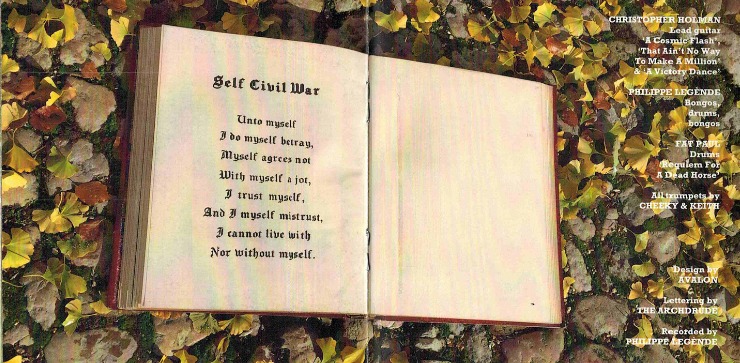 Self Civil War
Unto myself
I do myself betray,
Myself agrees not
With myself a jot,
I trust myself,
And I myself mistrust,
I cannot live with
Nor without myself.
CHRISTOPHER HOLMAN
Lead guitar
'A Cosmic Flash',
'That Ain't No Way
To Make A Million'
& 'A Victory Dance'
PHILIPPE LEGENDE
Bongos,
drums,
bongos
FAT PAUL
Drums
'Requiem For
A Dead Horse'
All trumpets by
CHEEKY & KEITH
Design by
AVALON
Lettering by
THE ARCHDRUDE
Recorded by
PHILIPPE LEGENDE